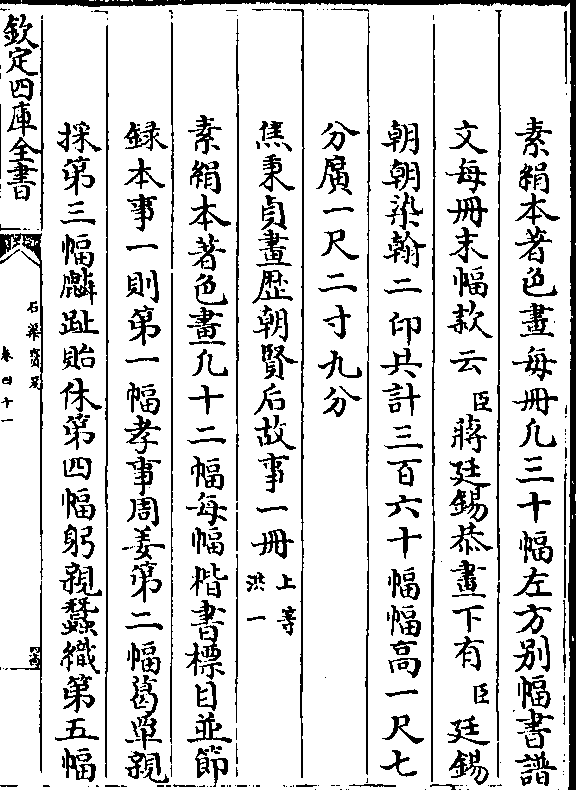 素絹本著色畫每冊凡三十幅左方别幅書譜
文每冊末幅款云臣蔣廷錫恭畫下有臣廷錫
朝朝染翰二印共計三百六十幅幅高一尺七
分廣一尺二寸九分
焦秉貞畫歴朝賢后故事一冊上等洪一
素絹本著色畫凡十二幅每幅楷書標目並節
録本事一則第一幅孝事周姜第二幅葛覃親
採第三幅麟趾貽休第四幅躬親蠶織第五幅
欽定四庫全書
石渠寳笈
卷四十一